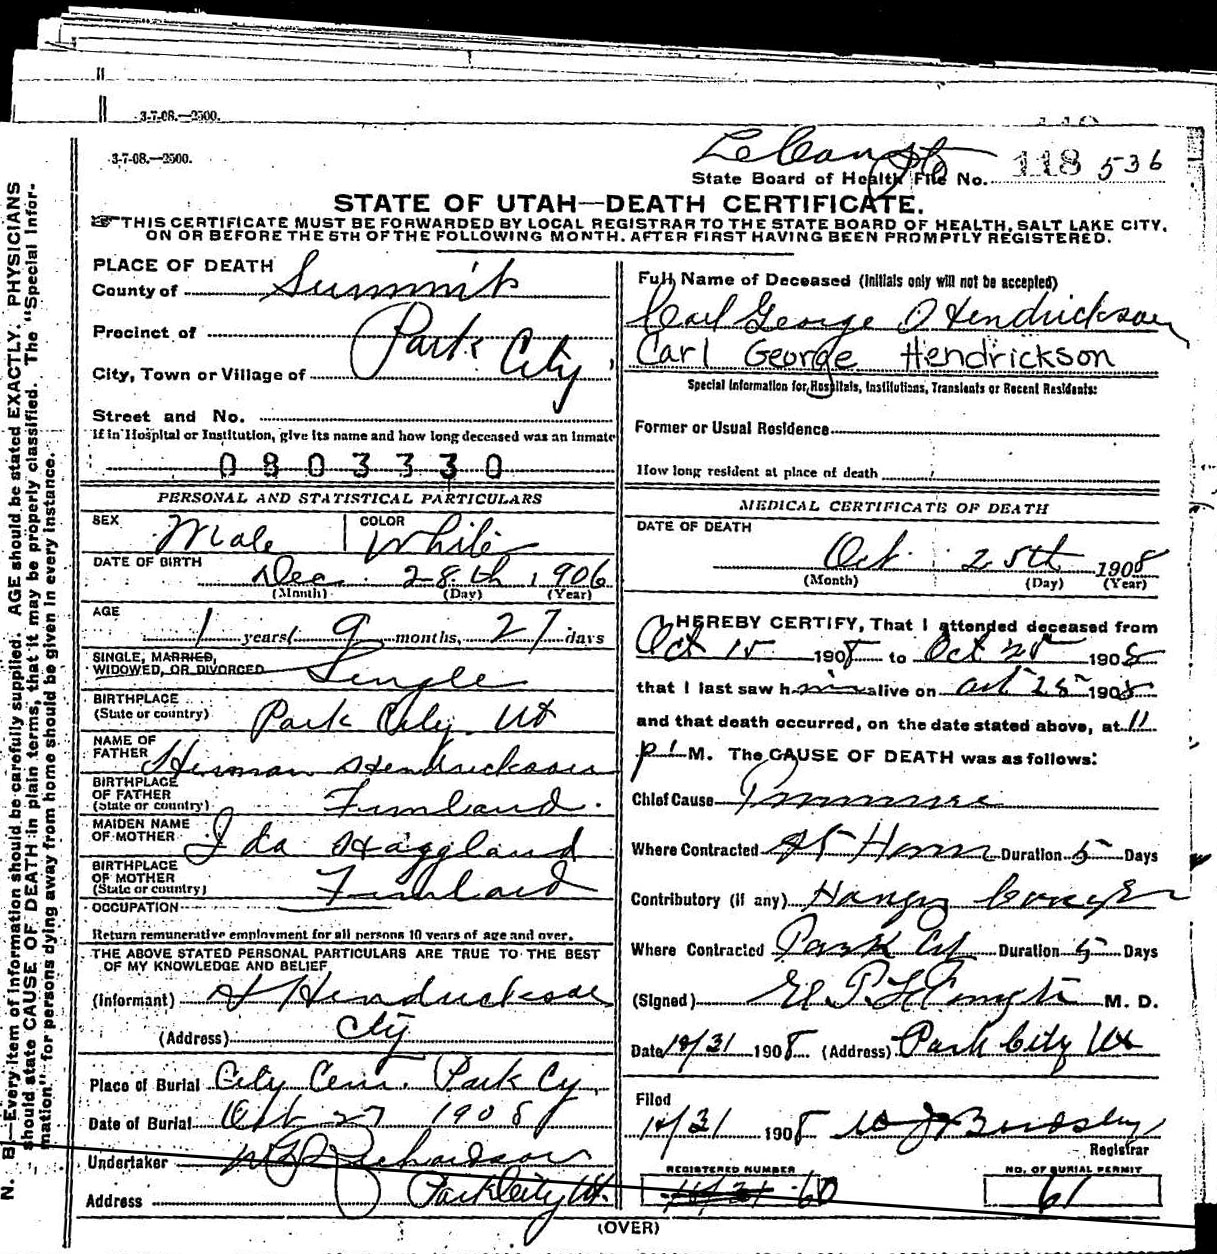 3-7-08.—2500.
3-7-08.—2500.
State Board of Health File No. 118 536
STATE OF UTAH—DEATH CERTIFICATE.
THIS CERTIFICATE MUST BE FORWARDED BY LOCAL REGISTRAR TO THE STATE BOARD OF HEALTH, SALT LAKE CITY,
ON OR BEFORE THE 5TH OF THE FOLLOWING MONTH. AFTER FIRST HAVING BEEN PROMPTLY REGISTERED.
PLACE OF DEATH
County of Summit
Precinct of
Park City
City, Town or Village of
Street and No.
If in Hospital or Institution, give its name and how long deceased was an inmate
0 8 0 3 3 3 0
PERSONAL AND STATISTICAL PARTICULARS
SEX Male COLOR White
DATE OF BIRTH Dec. 28th, 1906
(Month) (Day) (Year)
AGE
1 years 9 months, 27 days
SINGLE, MARRIED,
WIDOWED, OR DIVORCED Single
BIRTHPLACE
(State or country) Park City. Ut
NAME OF
FATHER Herman Hendrickson
BIRTHPLACE
OF FATHER
(State or country) Finland.
MAIDEN NAME
OF MOTHER Ida Haggland
BIRTHPLACE
OF MOTHER
(State or country) Finland
OCCUPATION
Return remunerative employment for all persons 10 years of age and over.
THE ABOVE STATED PERSONAL PARTICULARS ARE TRUE TO THE BEST
OF MY KNOWLEDGE AND BELIEF
(Informant) H Hendrickson
(Address) City
Place of Burial City Cem. Park Cy.
Date of Burial Oct 27 1908
Undertaker Richardson
Address Park City Ut.
Full Name of Deceased (Initials only will not be accepted)
Carl George Hendrickson
Carl George Hendrickson
Special Information for Hospitals, Institutions, Transients or Recent Residents:
Former or Usual Residence
How long resident at place of death
MEDICAL CERTIFICATE OF DEATH
DATE OF DEATH
Oct. 25th 1908
(Month) (Day) (Year)
I HEREBY CERTIFY, That I attended deceased from
Oct 15 1908 to Oct 25 1908
that I last saw him alive on Oct 25 1908
and that death occurred, on the date stated above, at 11
P. M. The CAUSE OF DEATH was as follows:
Chief Cause
Where Contracted At Home Duration 5 Days
Contributory (if any)
Where Contracted Park City Duration 5 Days
(Signed) M. D.
Date 10/31 1908 (Address) Park City Ut
Filed
10/31 1908
Registrar
REGISTERED NUMBER NO. OF BURIAL PERMIT
60 61
(OVER)
N. B.—Every item of information should be carefully supplied. AGE should be stated EXACTLY. PHYSICIANS
should state CAUSE OF DEATH in plain terms, that it may be properly classified. The "Special Infor-
mation" for persons dying away from home should be given in every instance.